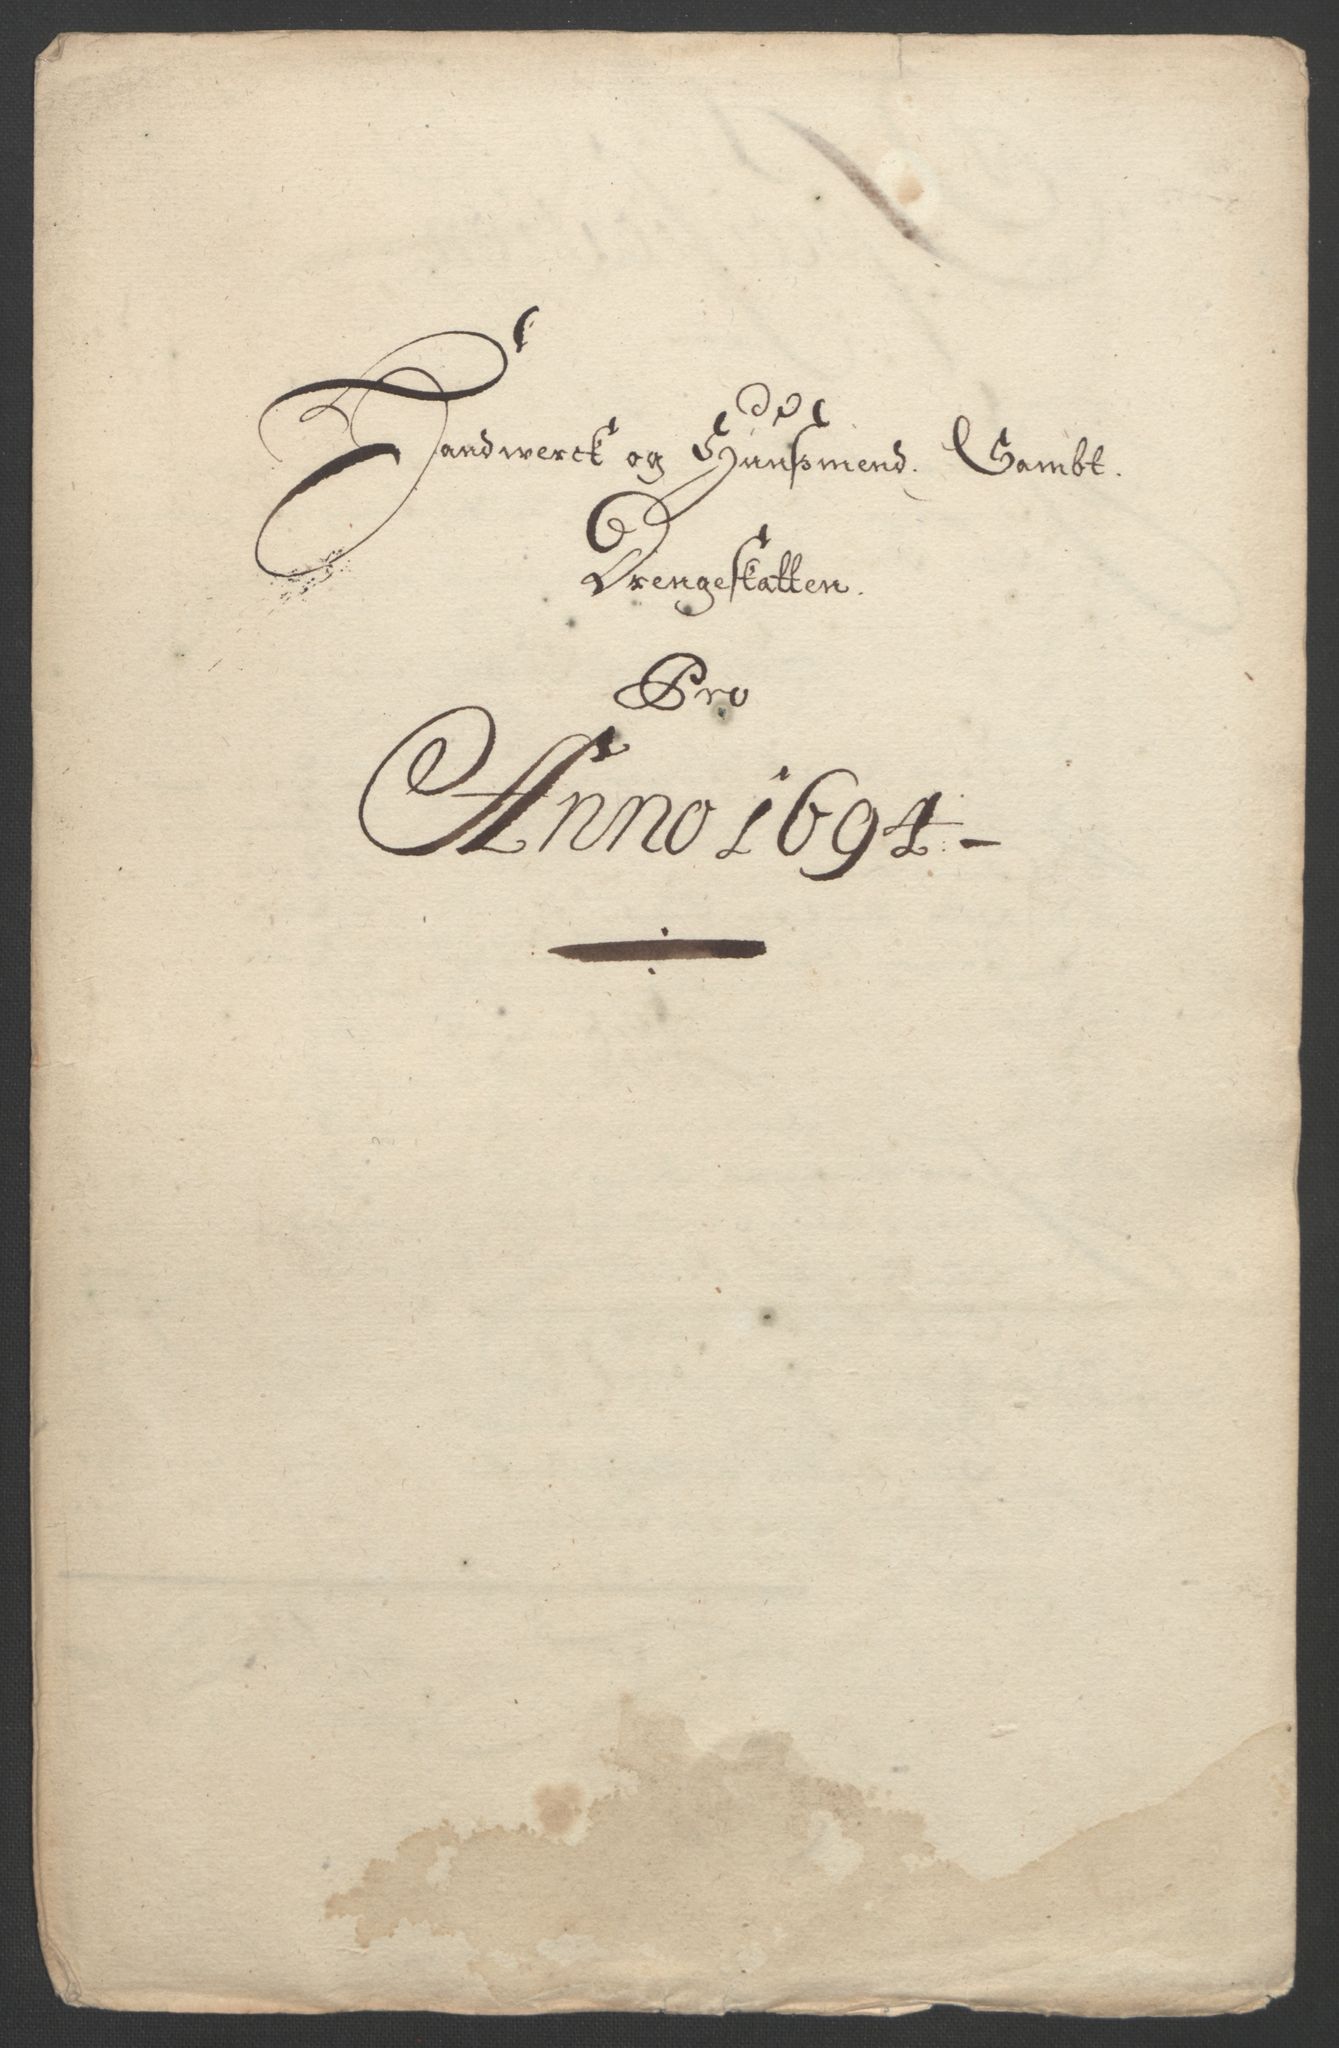 Handwerck og Huusmend. Sambt.
Drengeskatten.
Pro
Anno 1694